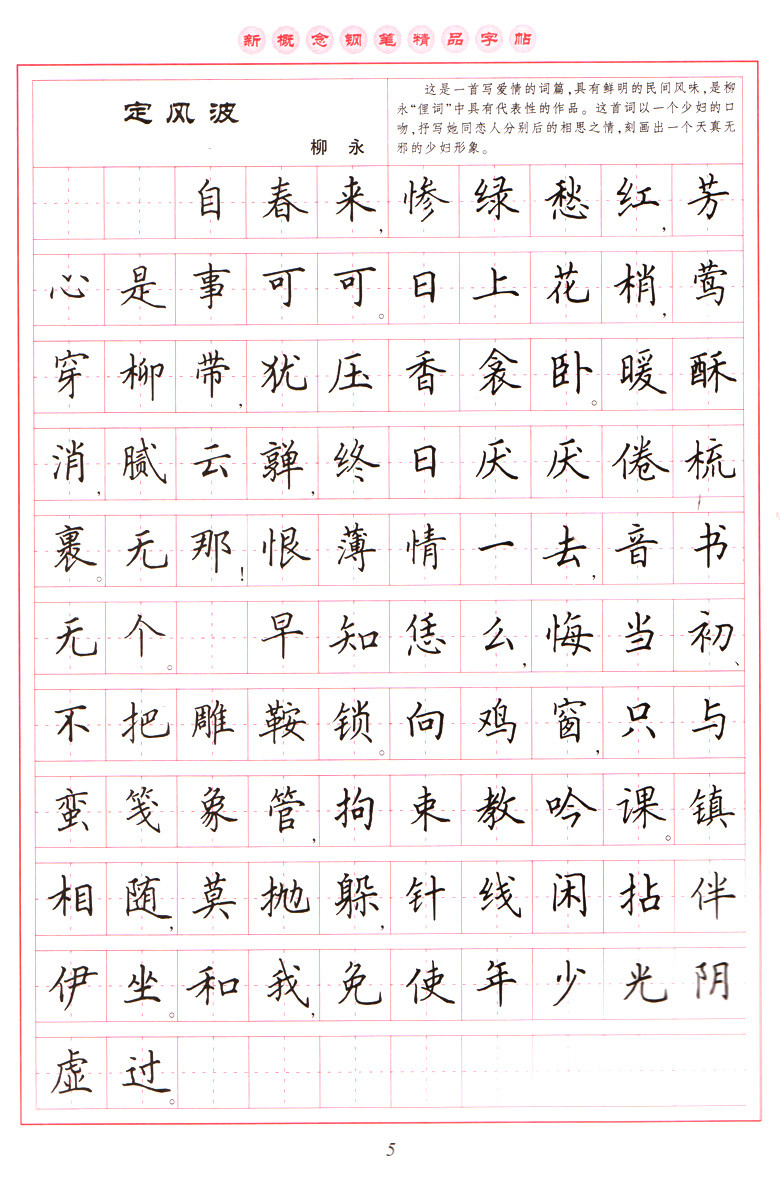 新概念钢笔精品字帖
定风波
柳 永
这是一首写爱情的词篇,具有鲜明的民间风味,是柳
永“俚词”中具有代表性的作品。这首词以一个少妇的口
吻,抒写她同恋人分别后的相思之情,刻画出一个天真无
邪的少妇形象。
自春来,惨绿愁红,芳
心是事可可。日上花梢,莺
穿柳带,犹压香衾卧。暖酥
消,腻云亸,终日厌厌倦梳
裹。无那!恨薄情一去,音书
无个。 早知恁么,悔当初、
不把雕鞍锁。向鸡窗,只与
蛮笺象管,拘束教吟课。镇
相随,莫抛躲,针线闲拈伴
伊坐。和我,免使年少光阴
虚过。
5